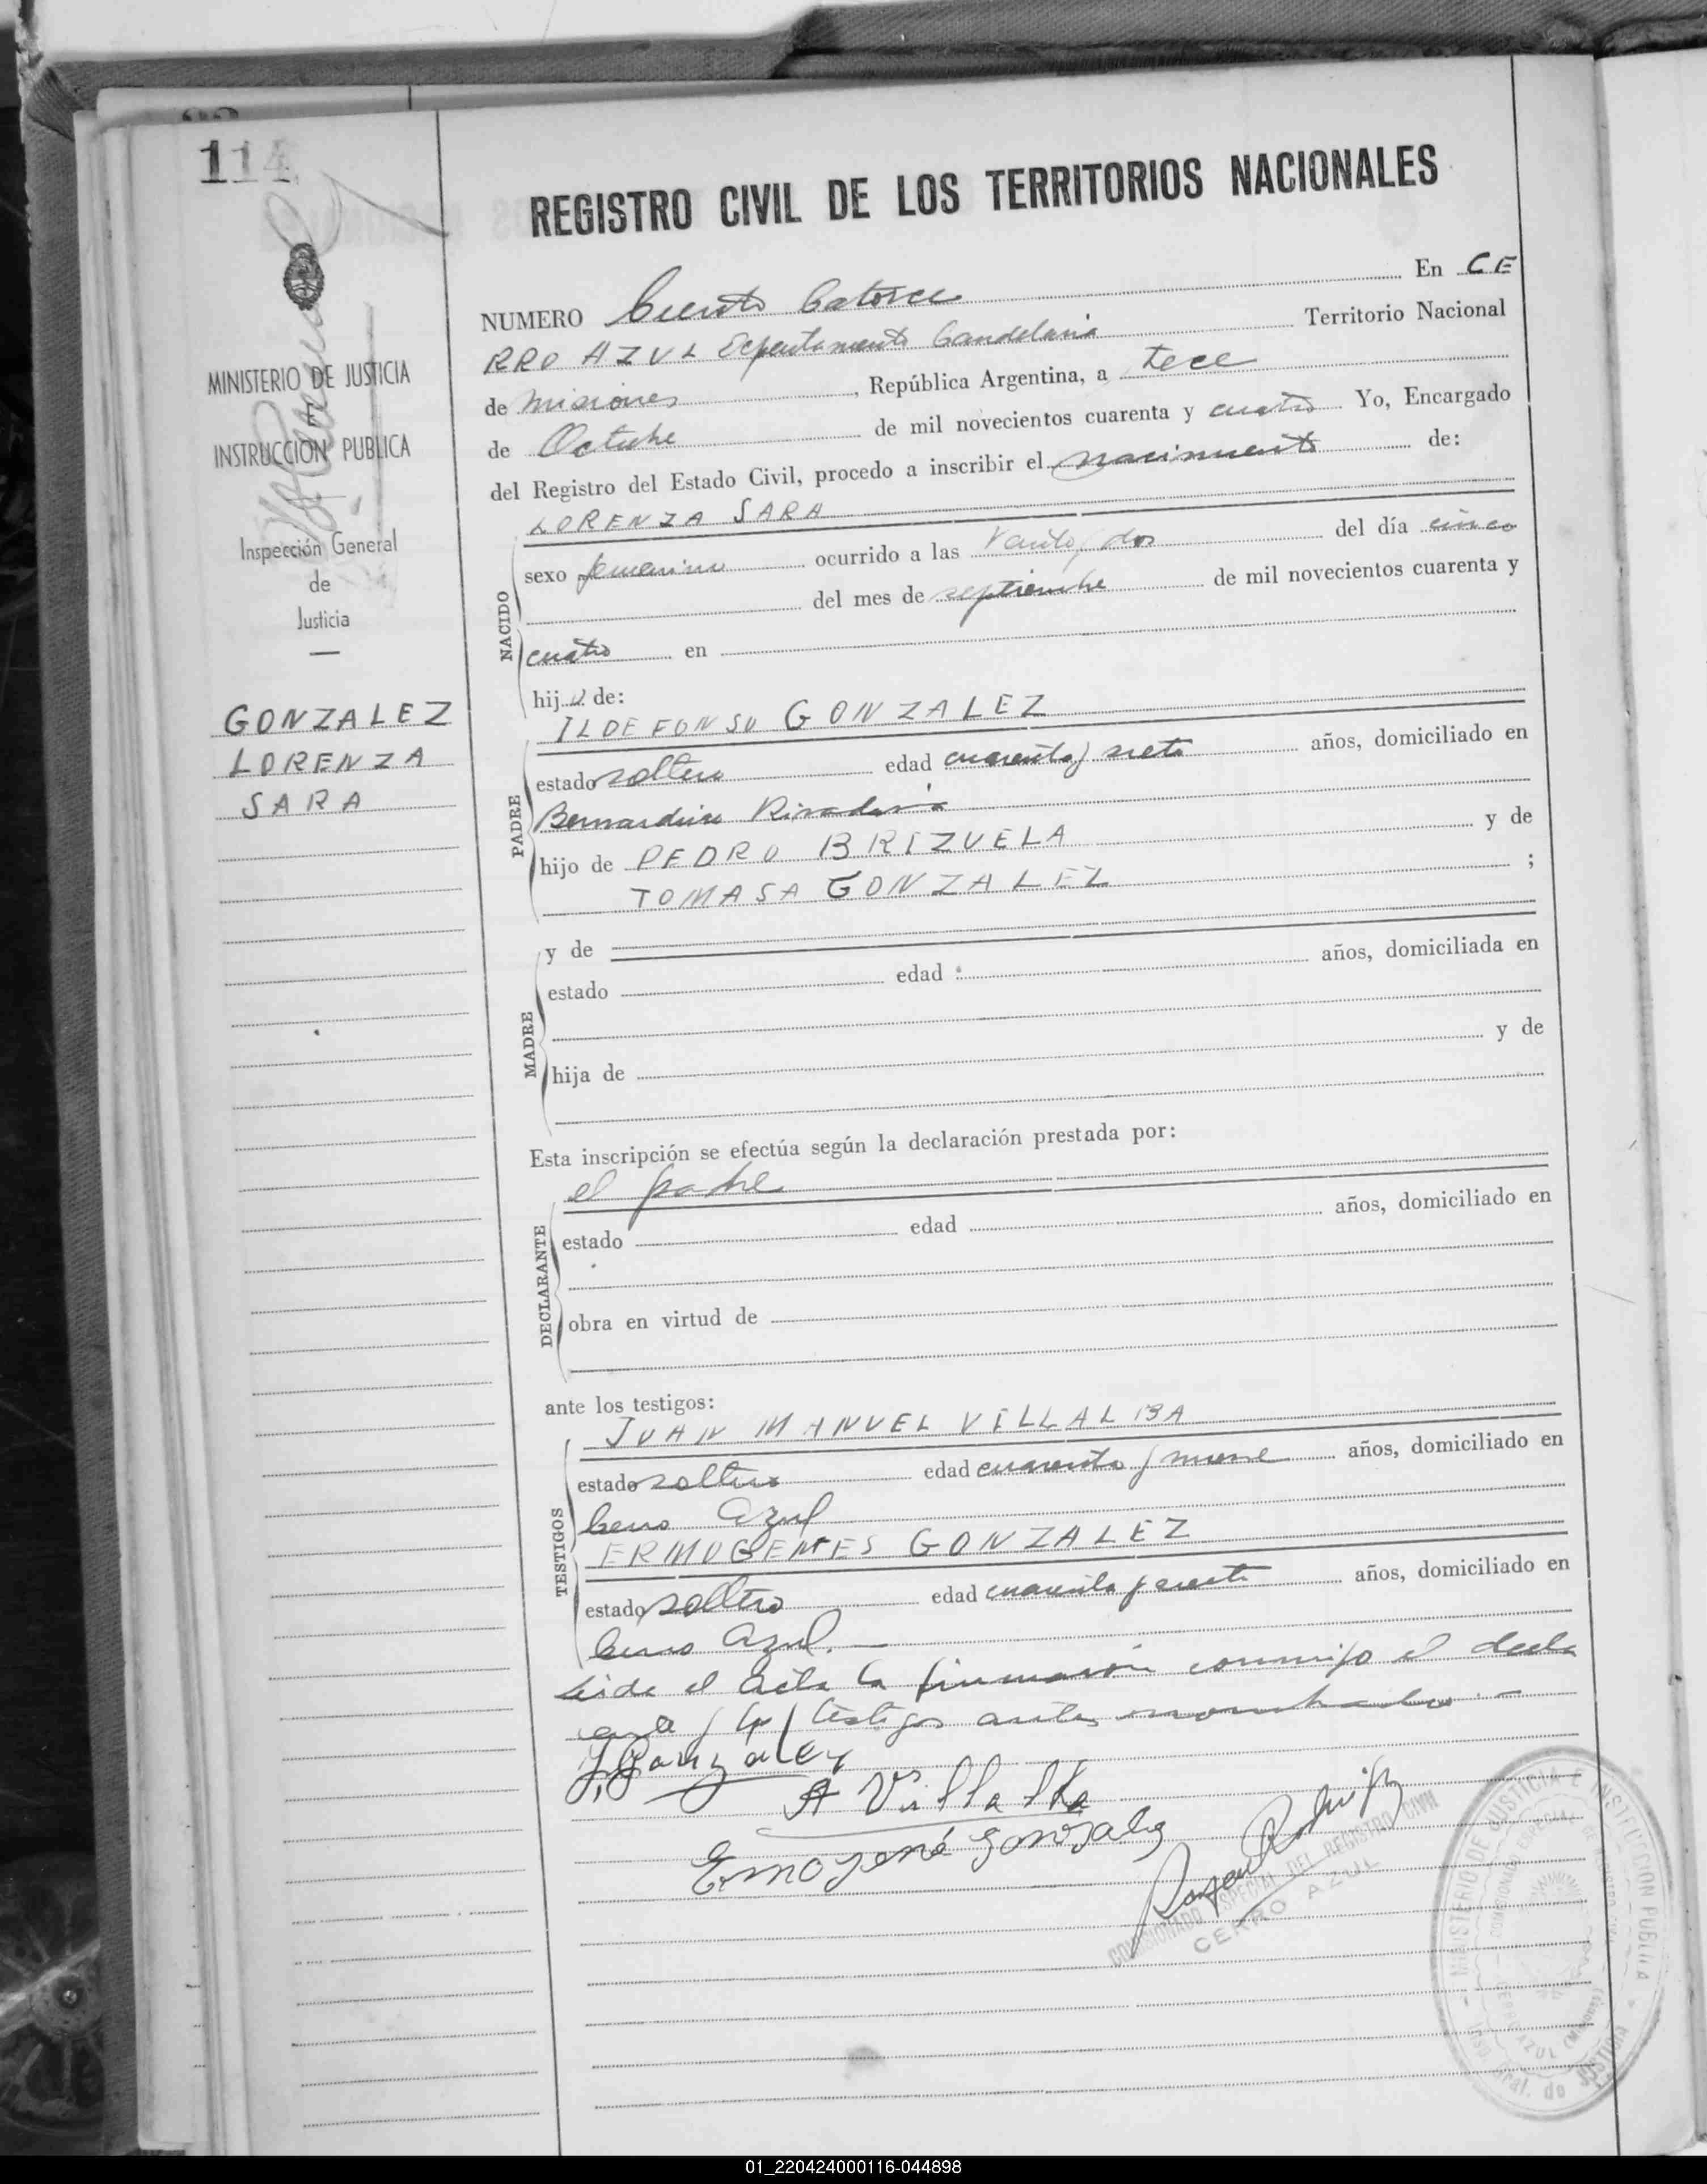 114
REGISTRO CIVIL DE LOS TERRITORIOS NACIONALES
MINISTERIO DE JUSTICIA
E
INSTRUCCION PUBLICA
Inspección General
de
Justicia
GONZALEZ
LORENZA
SARA
NUMERO Ciento Catorce En CE
RRO AZUL Departamento Candelaria Territorio Nacional
de Misiones, República Argentina, a trece
de Octubre de mil novecientos cuarenta y cuatro Yo, Encargado
del Registro del Estado Civil, procedo a inscribir el nacimiento de:
NACIDO
LORENZA SARA
sexo femenino ocurrido a las Veinte y dos del día cinco
del mes de septiembre de mil novecientos cuarenta y
cuatro en
hija de:
PADRE
ILDEFONSO GONZALEZ
estado soltero edad cuarenta y siete años, domiciliado en
Bernardino Rivadavia
hijo de PEDRO BRIZUELA y de
TOMASA GONZALEZ ;
MADRE
y de
estado edad años, domiciliada en
hija de y de
Esta inscripción se efectúa según la declaración prestada por:
DECLARANTE
el padre
estado edad años, domiciliado en
obra en virtud de
ante los testigos:
TESTIGOS
JUAN MANUEL VILLALBA
estado soltero edad cuarenta y nueve años, domiciliado en
Cerro Azul
ERMOGENES GONZALEZ
estado soltero edad cuarenta y años, domiciliado en
Cerro Azul.—
Leida el Acta la firmaron conmigo el decla
y testigos antes nombrados.—
I. Gonzalez
A Villalba
Emogené Gonzalez
COMISIONADO ESPECIAL DEL REGISTRO CIVIL
CERRO AZUL
MINISTERIO DE JUSTICIA E INSTRUCCION PUBLICA
Insp. Gral. de Justicia
CERRO AZUL (Misiones)
01_220424000116-044898